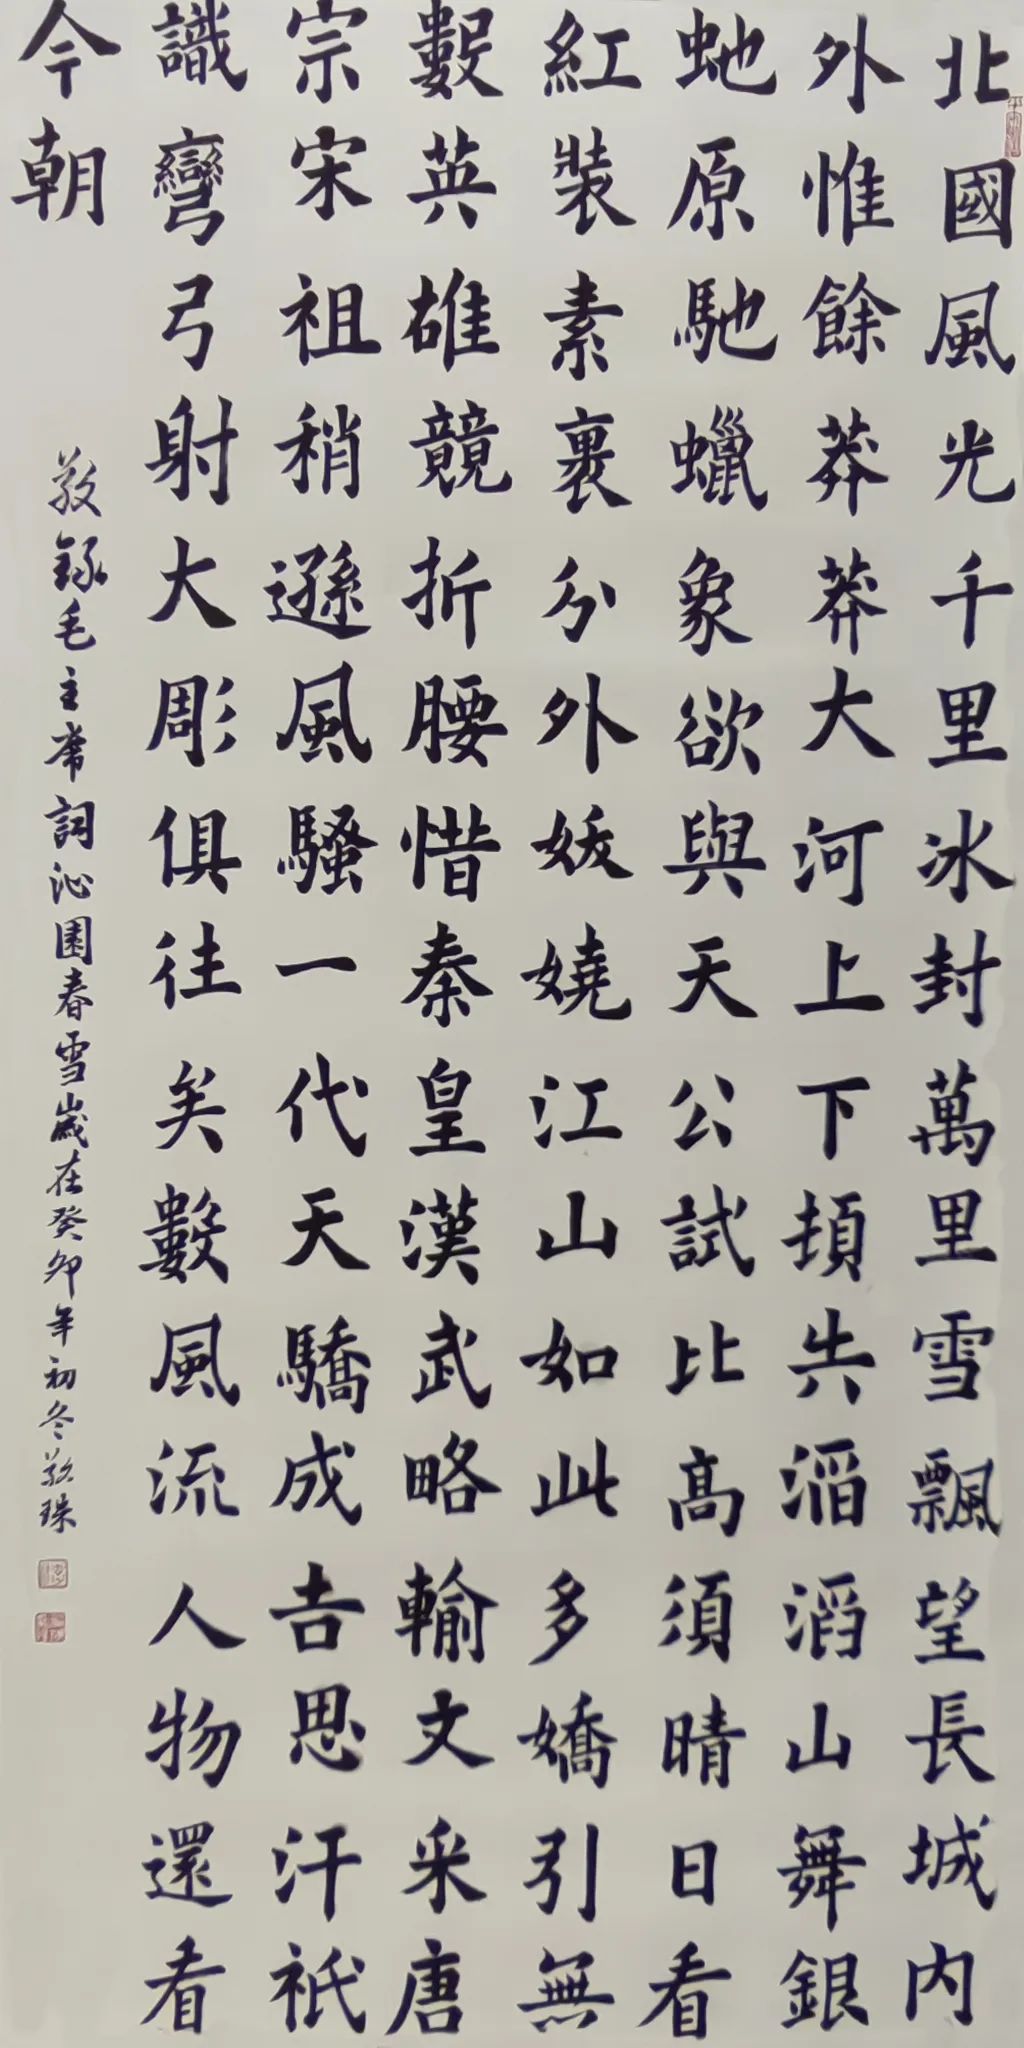 北國風光千里冰封萬里雪飄望長城内
外惟餘莽莽大河上下頓失滔滔山舞銀
虵原馳蠟象欲與天公試比高須晴日看
紅裝素裹分外妖嬈江山如此多嬌引無
數英雄競折腰惜秦皇漢武略輸文采唐
宗宋祖稍遜風騷一代天驕成吉思汗祇
識彎弓射大彫俱往矣數風流人物還看
今朝
敬錄毛主席詞沁園春雪歲在癸卯年初冬敬珠